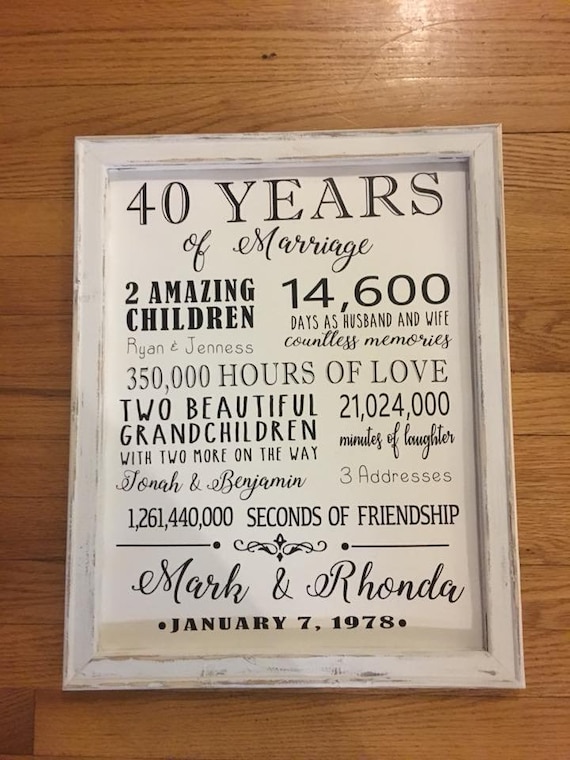 40 YEARS
of Marriage
2 AMAZING
CHILDREN
Ryan & Jenness
14,600
DAYS AS HUSBAND AND WIFE
countless memories
350,000 HOURS OF LOVE
TWO BEAUTIFUL
GRANDCHILDREN
WITH TWO MORE ON THE WAY
Jonah & Benjamin
21,024,000
minutes of laughter
3 Addresses
1,261,440,000 SECONDS OF FRIENDSHIP
Mark & Rhonda
•JANUARY 7, 1978•